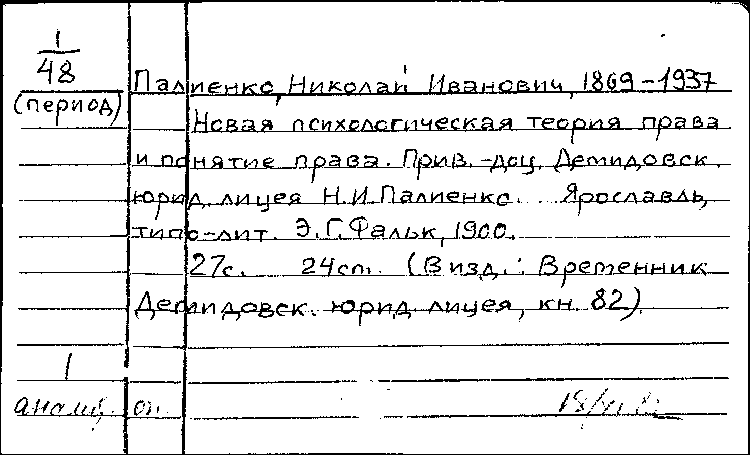 1
48
(период)
Палиенко, Николай Иванович, 1869-1937
Новая психологическая теория права
и понятие права. Прив.-доц. Демидовск.
юрид. лицея Н.И.Палиенко. Ярославль,
типо-лит. Э.Г.Фальк, 1900.
27с. 24cm. (В изд.: Временник
Демидовск. юрид. лицея, кн. 82).
1
аналит. оп.